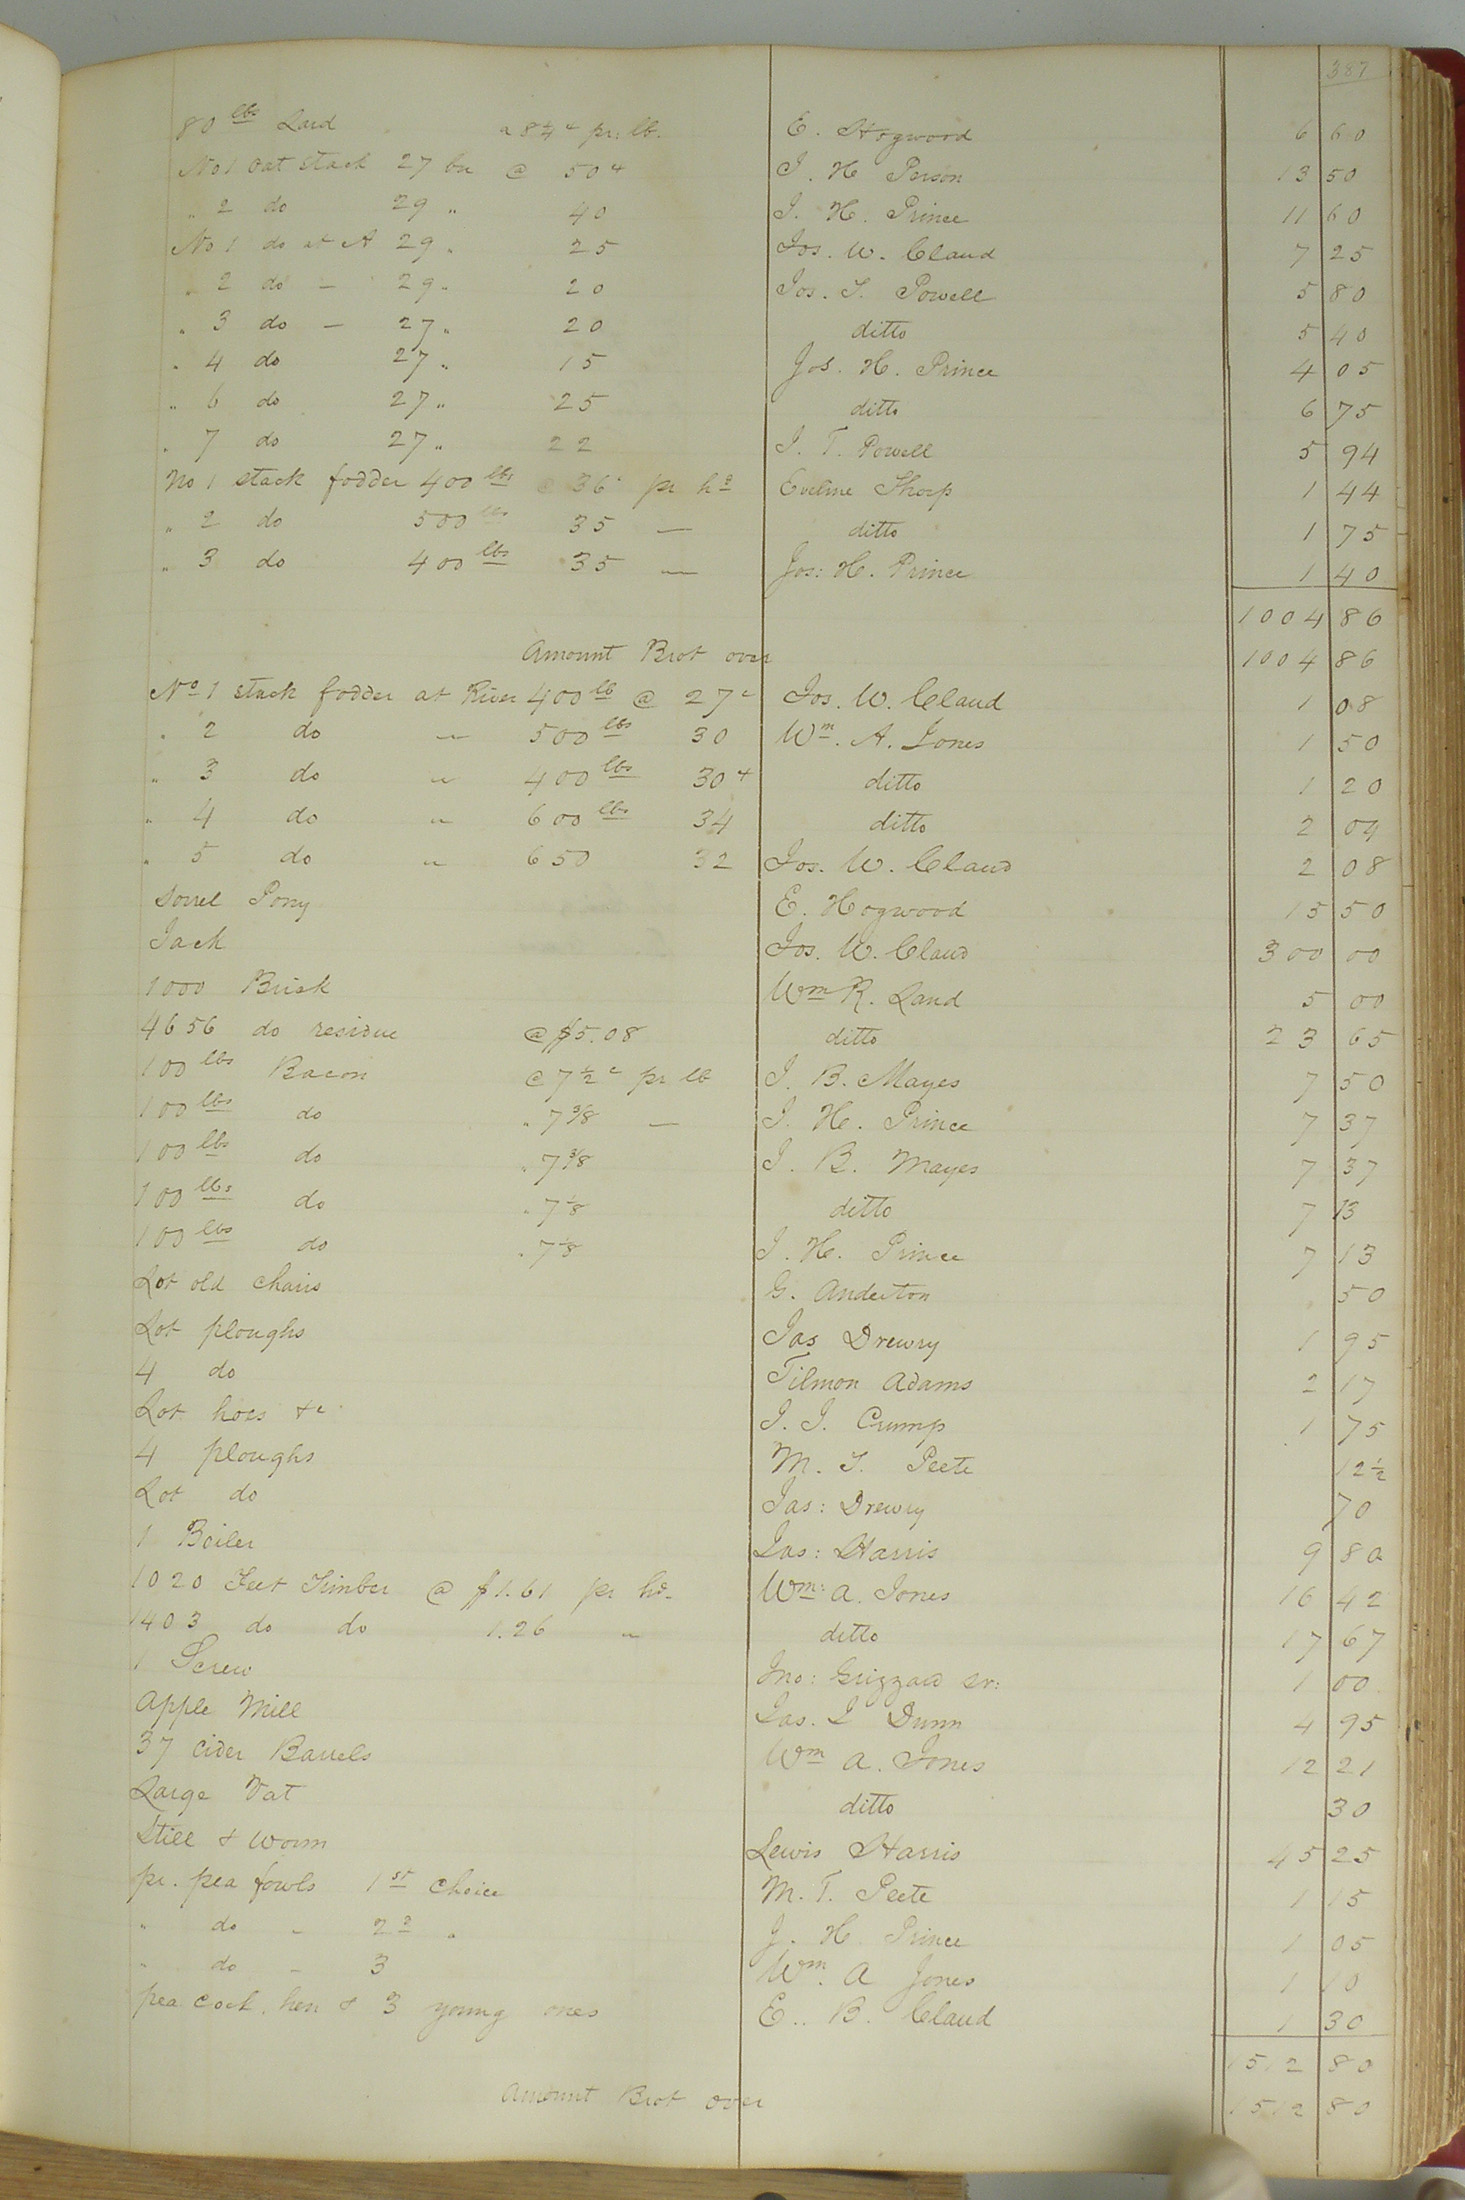 387
80 lbs Lard a 8¼ c pr: lb. E. Hogwood 6 60
No 1 oat stack 27 bu @ 50 c J. H. Person 13 50
" 2 do 29 " 40 J. H. Prince 11 60
No 1 do at A 29 " 25 Jos. W. Claud 7 25
" 2 do — 29 " 20 Jos. T. Powell 5 80
" 3 do — 27 " 20 ditto 5 40
" 4 do 27 " 15 Jos. H. Prince 4 05
" 6 do 27 " 25 ditto 6 75
" 7 do 27 " 22 J. T. Powell 5 94
No 1 stack fodder 400 lbs @ 36 c pr hd Eveline Thorp 1 44
" 2 do 500 lbs 35 — ditto 1 75
" 3 do 400 lbs 35 — Jos: H. Prince 1 40
1004 86
Amount Brot over 1004 86
No 1 stack fodder at River 400 lb @ 27 c Jos. W. Claud 1 08
" 2 do " 500 lbs 30 Wm. A. Jones 1 50
" 3 do " 400 lbs 30 c ditto 1 20
" 4 do " 600 lbs 34 ditto 2 04
" 5 do " 650 32 Jos. W. Claud 2 08
Sorrel Pony E. Hogwood 15 50
Jack Jos. W. Claud 300 00
1000 Brick Wm R. Land 5 00
4656 do residue @ $5.08 ditto 23 65
100 lbs Bacon @ 7½ c pr lb J. B. Mayes 7 50
100 lbs do " 7 3/8 — J. H. Prince 7 37
100 lbs do " 7 3/8 J. B. Mayes 7 37
100 lbs do " 7 1/8 ditto 7 13
100 lbs do " 7 1/8 J. H. Prince 7 13
Lot old chairs G. Anderton 50
Lot ploughs Jas Drewry 1 95
4 do Tilmon Adams 2 17
Lot hoes &c J. J. Crump 1 75
4 ploughs M. T. Peete 12½
Lot do Jas: Drewry 70
1 Boiler Jas: Harris 9 80
1020 Feet Timber @ $1.61 pr hd. Wm: A. Jones 16 42
1403 do do 1.26 " ditto 17 67
1 Screw Jno: Grizzard sr: 1 00
Apple Mill Jas. L Dunn 4 95
37 Cider Barrels Wm A. Jones 12 21
Large Vat ditto 30
Still & Worm Lewis Harris 45 25
pr. pea fowls 1st Choice M. T. Peete 1 15
" do " 2d " J. H. Prince 1 05
" do — 3 Wm. A Jones 1 10
pea cock, hen & 3 young ones E. B. Claud 1 30
1512 80
Amount Brot over 1512 80